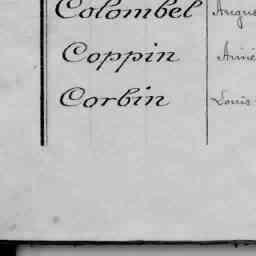 Colombel Augus
Coppin Aimé
Corbin Louis